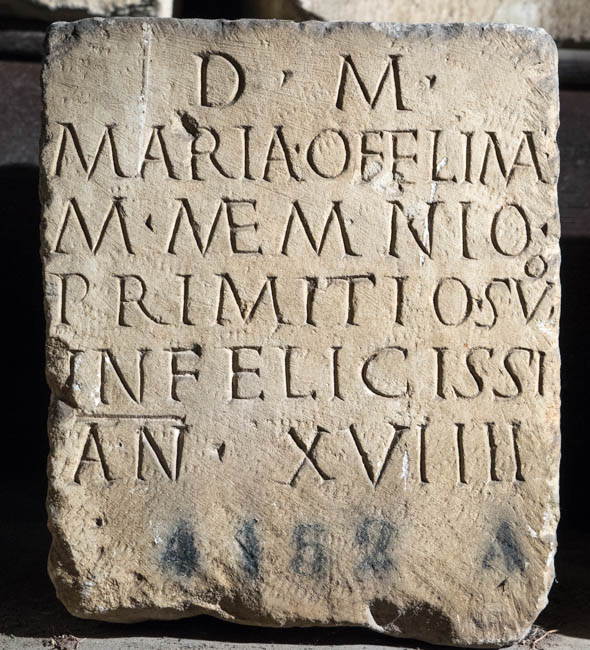 D · M ·
MARIA · OFELIMA
M · NEMNIO ·
PRIMITIO · SVO
INFELICISSI
AN · XVIIII
A